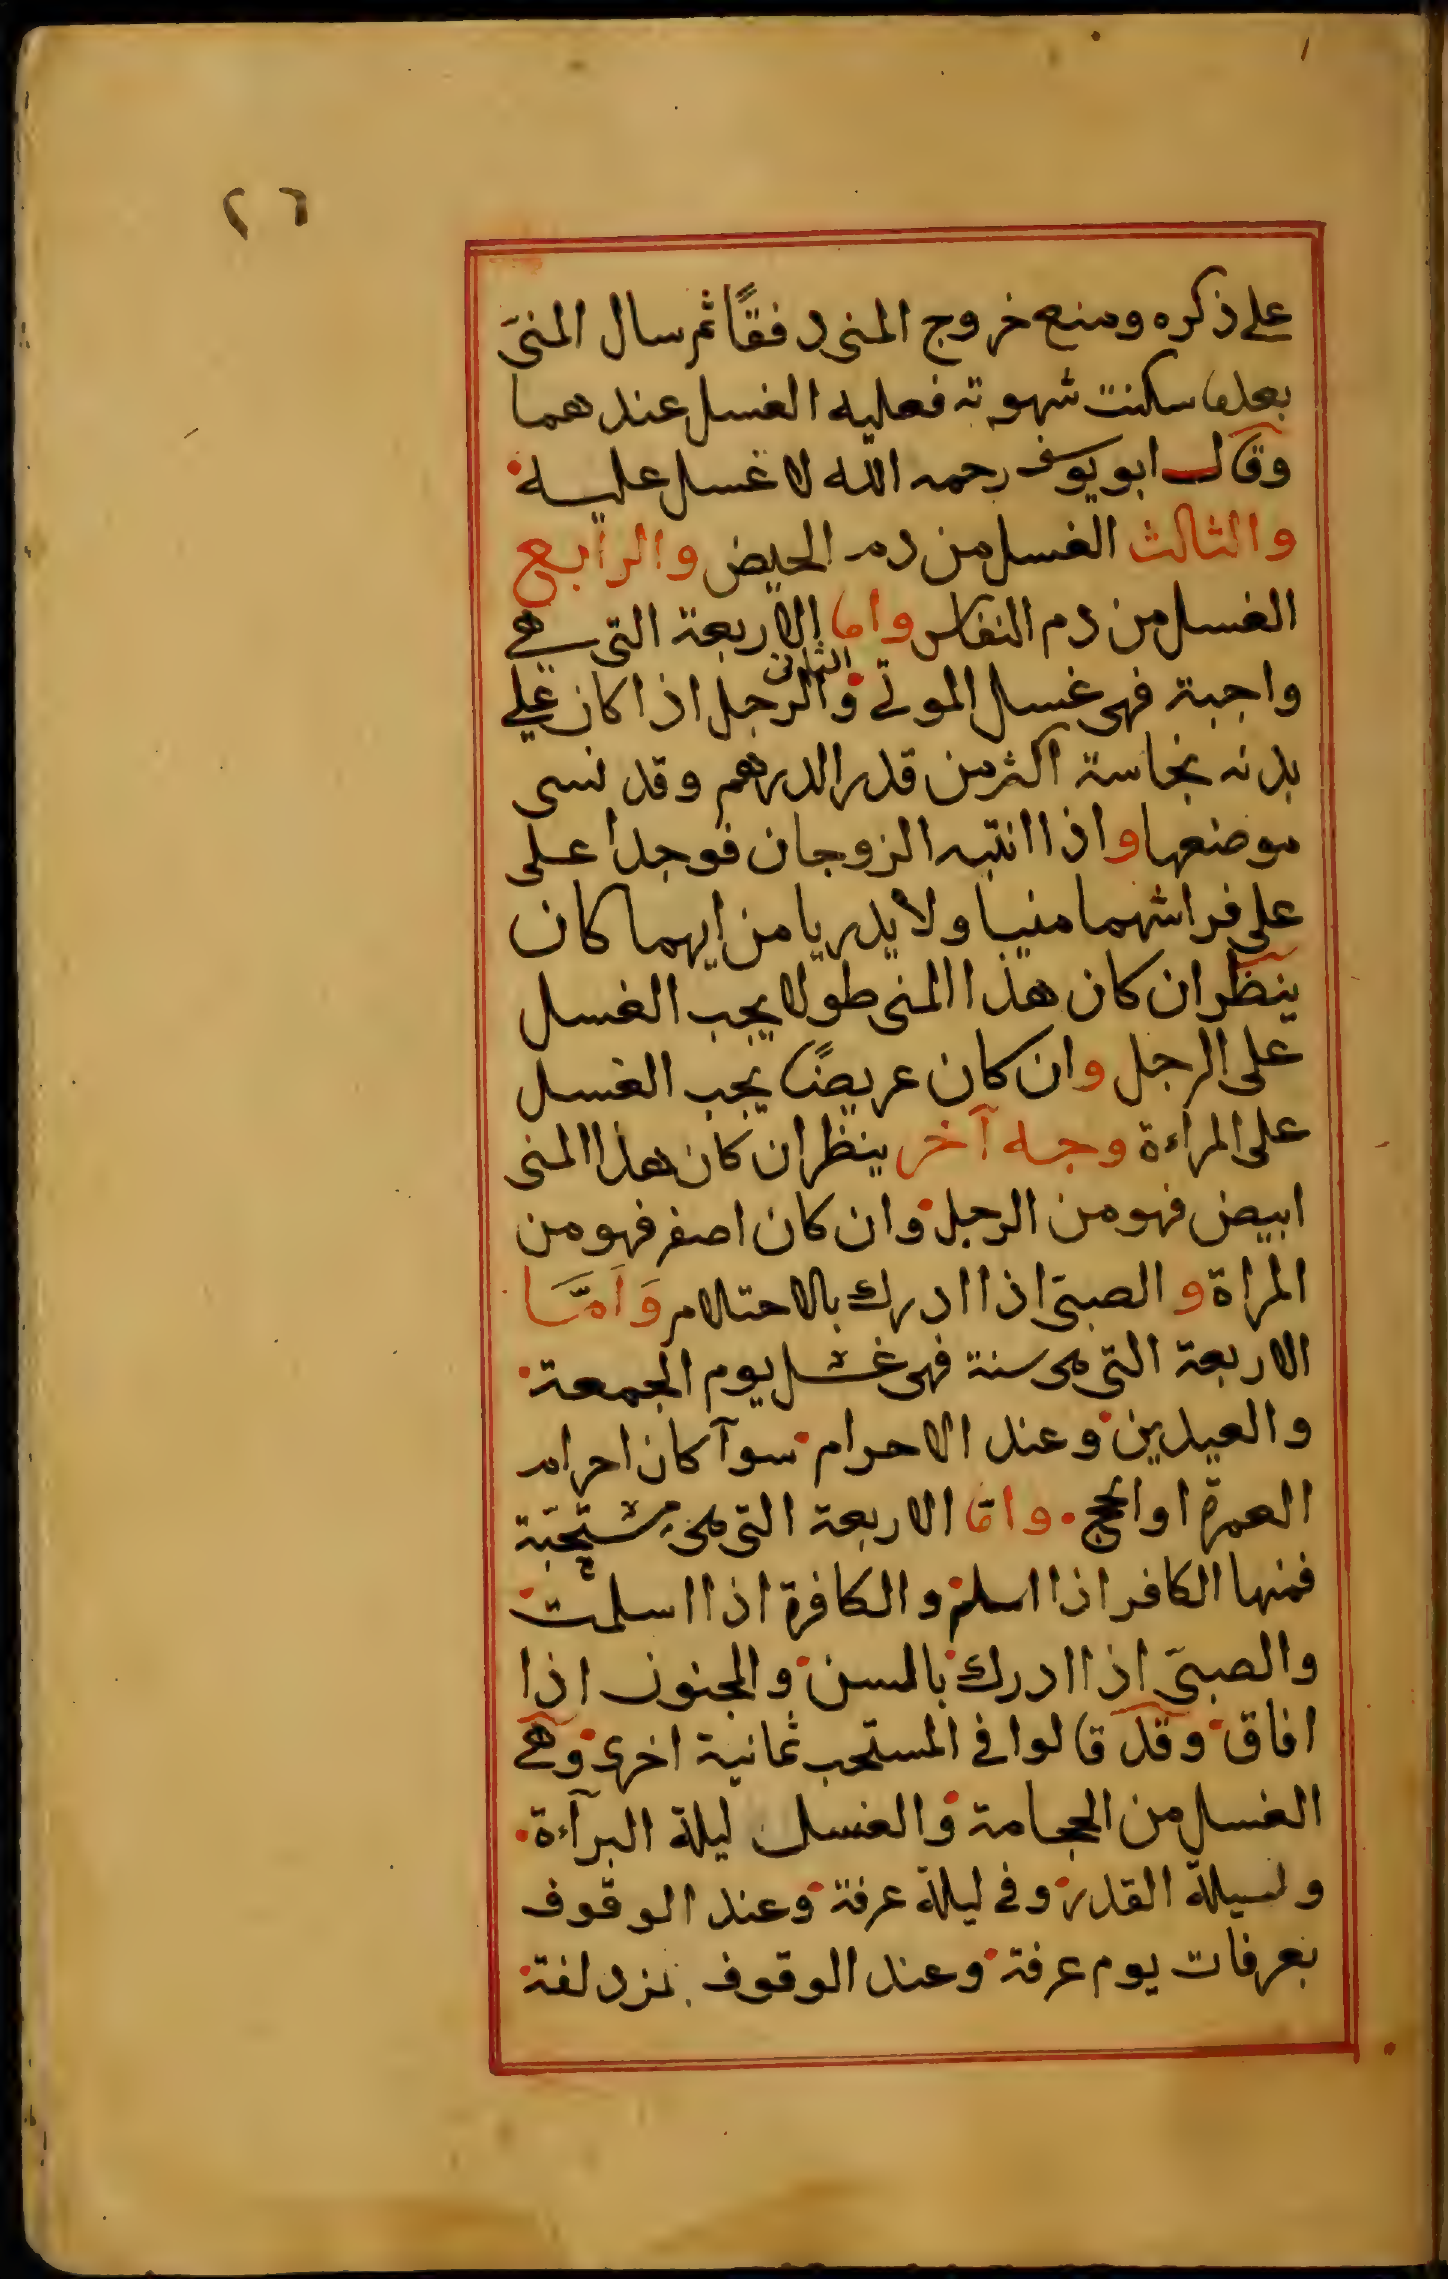 ٢٦
على ذكره ومنع خروج المنى دفقًا ثم سال المنىّ
بعدما سكنت شهوته فعليه الغسل عندهما
وقال ابو يوسف رحمه الله لا غسل عليه
والثالث الغسل من دم الحيض والرابع
الغسل من دم النفاس واما الاربعة التى هى
واجبة فهى غسل الموتى والرجل اذا كان على
الثانى
بدنه نجاسة اكثر من قدر الدرهم وقد نسى
موضعها واذا انتبه الزوجان فوجدا على
على فراشهما منيا ولا يدريا من ايهما كان
ينظر ان كان هذا المنى طولا يجب الغسل
على الرجل وان كان عريضًا يجب الغسل
على المراءة وجه آخر ينظر ان كان هذا المنى
ابيض فهو من الرجل وان كان اصفر فهو من
المراة والصبىّ اذا ادرك بالاحتلام وَاَمَّا
الاربعة التى هى سنة فهى غسل يوم الجمعة
والعيدين وعند الاحرام سوآ كان احرام
العمرة او الحج. وامّا الاربعة التى هى مستحبّة
فمنها الكافر اذا اسلم والكافرة اذا اسلمت
والصبىّ اذا ادرك بالسن والمجنون اذا
افاق وقد قالوا فى المستحب ثمانية اخرى وهى
الغسل من الحجامة والغسل ليلة البرآءة
وليلة القدر وفى ليلة عرفة وعند الوقوف
بعرفات يوم عرفة وعند الوقوف بمزدلفة